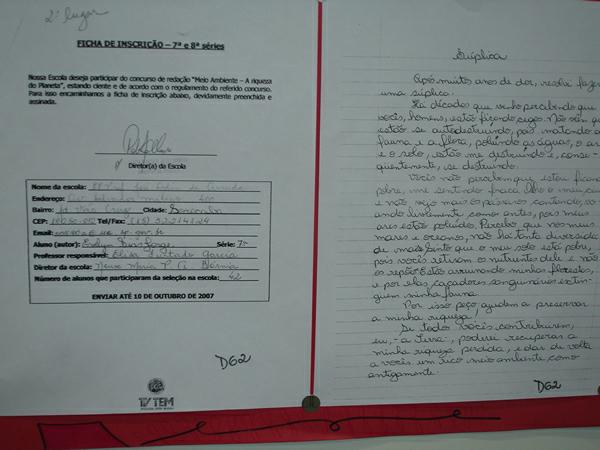 2º lugar
FICHA DE INSCRIÇÃO – 7ª e 8ª séries
Nossa Escola deseja participar do concurso de redação "Meio Ambiente – A riqueza
do Planeta", estando ciente e de acordo com o regulamento do referido concurso.
Para isso encaminhamos a ficha de inscrição abaixo, devidamente preenchida e
assinada.
Diretor(a) da Escola
Nome da escola:
Endereço:
Bairro: Cidade: Sorocaba
CEP: Tel/Fax: (15)
Email:
Aluno (autor): Série: 7ª
Professor responsável: Elisa Furtado Garcia
Diretor da escola: Neusa Maria
Número de alunos que participaram da seleção na escola: 42
ENVIAR ATÉ 10 DE OUTUBRO DE 2007
D62
TV TEM
Súplica
Após muitos anos de dor, resolvi fazer
uma súplica.
Há décadas que venho percebendo que
vocês, homens, estão ficando cegos. Não vêm que
estão se autodestruindo, pois matando a
fauna e a flora, poluindo as águas, o ar
e o solo, estão me destruindo e, conse-
quentemente, se destruindo.
Vocês não percebem que estou ficando
pobre, me sentindo fraca. Olho o meu céu
e não vejo mais os pássaros cantando, vo-
ando livremente como antes, pois meus
ares estão poluídos. Percebo que nos meus
mares e oceanos, não há tanta diversidade
de mais. Sinto que o meu solo está pobre,
pois vocês retiram os nutrientes dele e não
os repõe. Estão arruinando minhas florestas,
e por elas, caçadores sanguinários extin-
guem minha fauna.
Por isso peço, ajudem a preservar
a minha riqueza.
Se todos vocês contribuírem,
eu, - a Terra -, poderei recuperar a
minha riqueza perdida, e dar de volta
a vocês um rico meio ambiente, como
antigamente.
D62